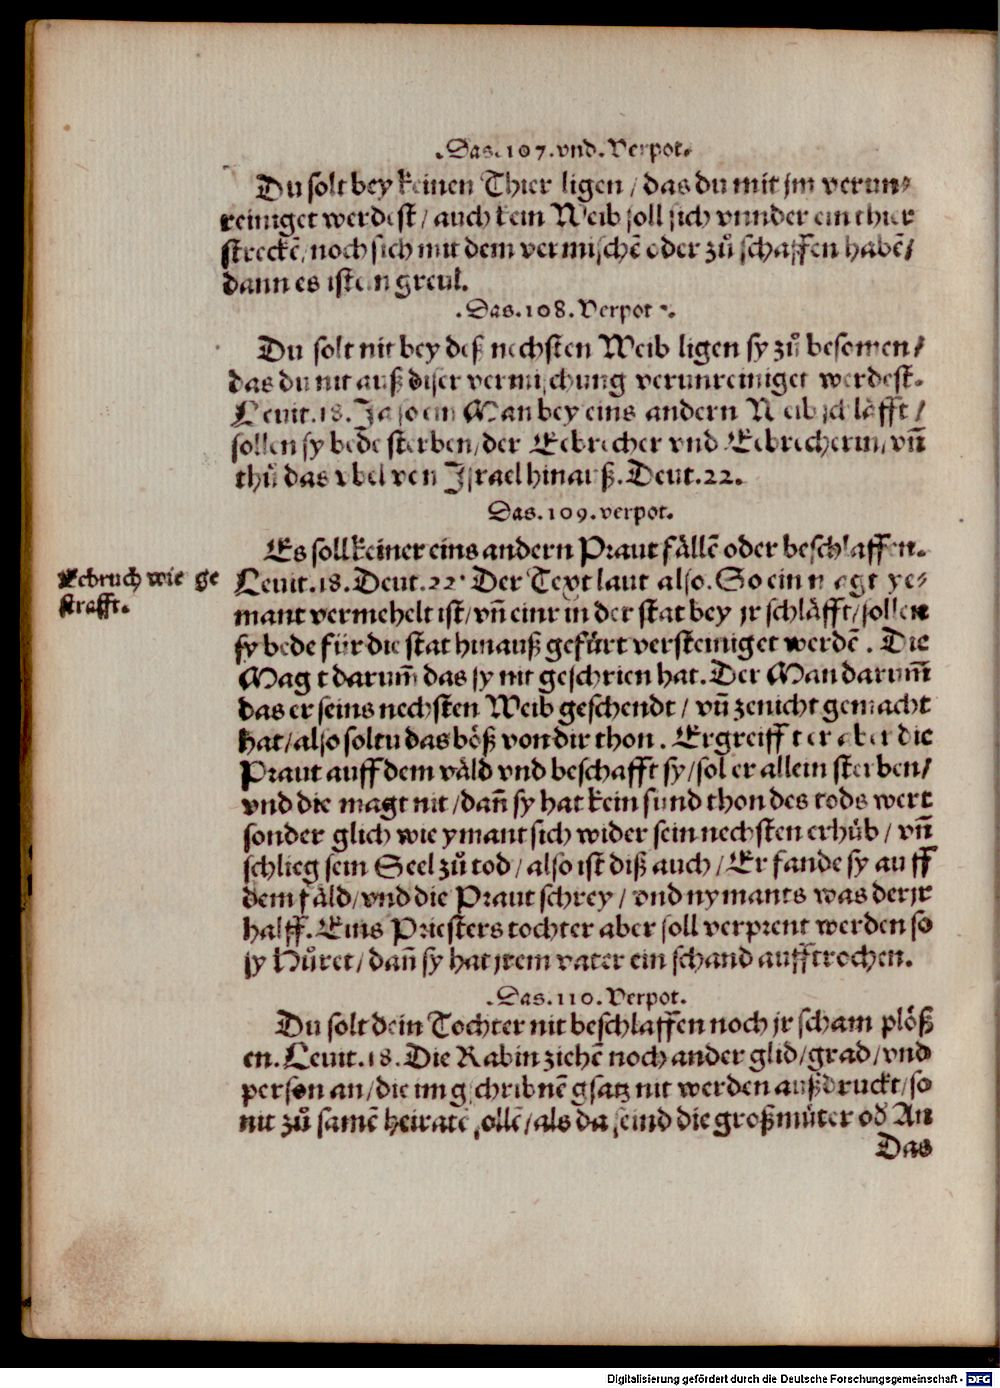 .Das.107.vnd.Verpot.
Du solt bey keinen Thier ligen / das du mit jm verun⸗
reiniget werdest / auch kein Weib soll sich vnnder ein thier
streckē / noch sich mit dem vermischē oder zů schaffen habē /
dann es ist ein greul.
.Das.108.Verpot.
Du solt nit bey deß nechsten Weib ligen sy zů besomen /
das du nit auß diser vermischung verunreiniget werdest.
Leuit.18. Ja so ein Man bey eins andern Weib schläfft /
sollen sy bede sterben / der Eebrecher vnd Eebrecherin, vn̄
thů das vbel von Israel hinauß. Deut.22.
Das.109.verpot.
Es soll keiner eins andern Praut fällē oder beschlaffen.
Eebruch wie ge
strafft.
Leuit.18. Deut.22. Der Text laut also. So ein magt ye⸗
mant vermehelt ist / vn̄ einr in der stat bey jr schläfft / sollen
sy bede für die stat hinauß gefürt versteiniget werdē. Die
Magt darum̄ das sy nit geschrien hat. Der Man darum̄
das er seins nechsten Weib geschendt / vn̄ zenicht gemacht
hat / also soltu das böß von dir thon. Ergreifft er aber die
Praut auff dem väld vnd beschafft sy / sol er allein sterben /
vnd die magt nit / dan̄ sy hat kein sund thon des tods wert
sonder glich wie ymant sich wider sein nechsten erhüb / vn̄
schlieg sein Seel zů tod / also ist diß auch / Er fande sy auff
dem fäld / vnd die Praut schrey / vnd nymants was der jr
halff. Eins Priesters tochter aber soll verprent werden so
sy Hůret / dan̄ sy hat jrem vater ein schand aufftrochen.
.Das.110.Verpot.
Du solt dein Tochter nit beschlaffen noch jr scham plöß
en. Leuit.18. Die Rabin ziehē noch ander glid / grad / vnd
person an / die im gschribnē gsatz nit werden außdruckt / so
nit zů samē heiratē sollē / als da seind die großmüter od̄ An
Das
Digitalisierung gefördert durch die Deutsche Forschungsgemeinschaft - DFG